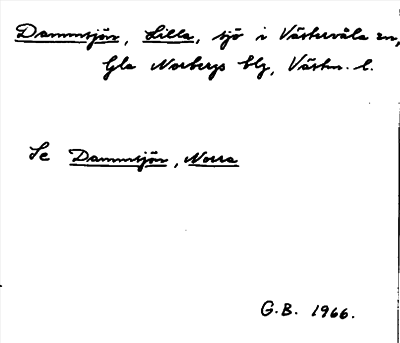 Dammsjön, Lilla, sjö i Västervåla sn,
Gla Norbergs blg, Västm. l.
Se Dammsjön, Norra
G.B. 1966.